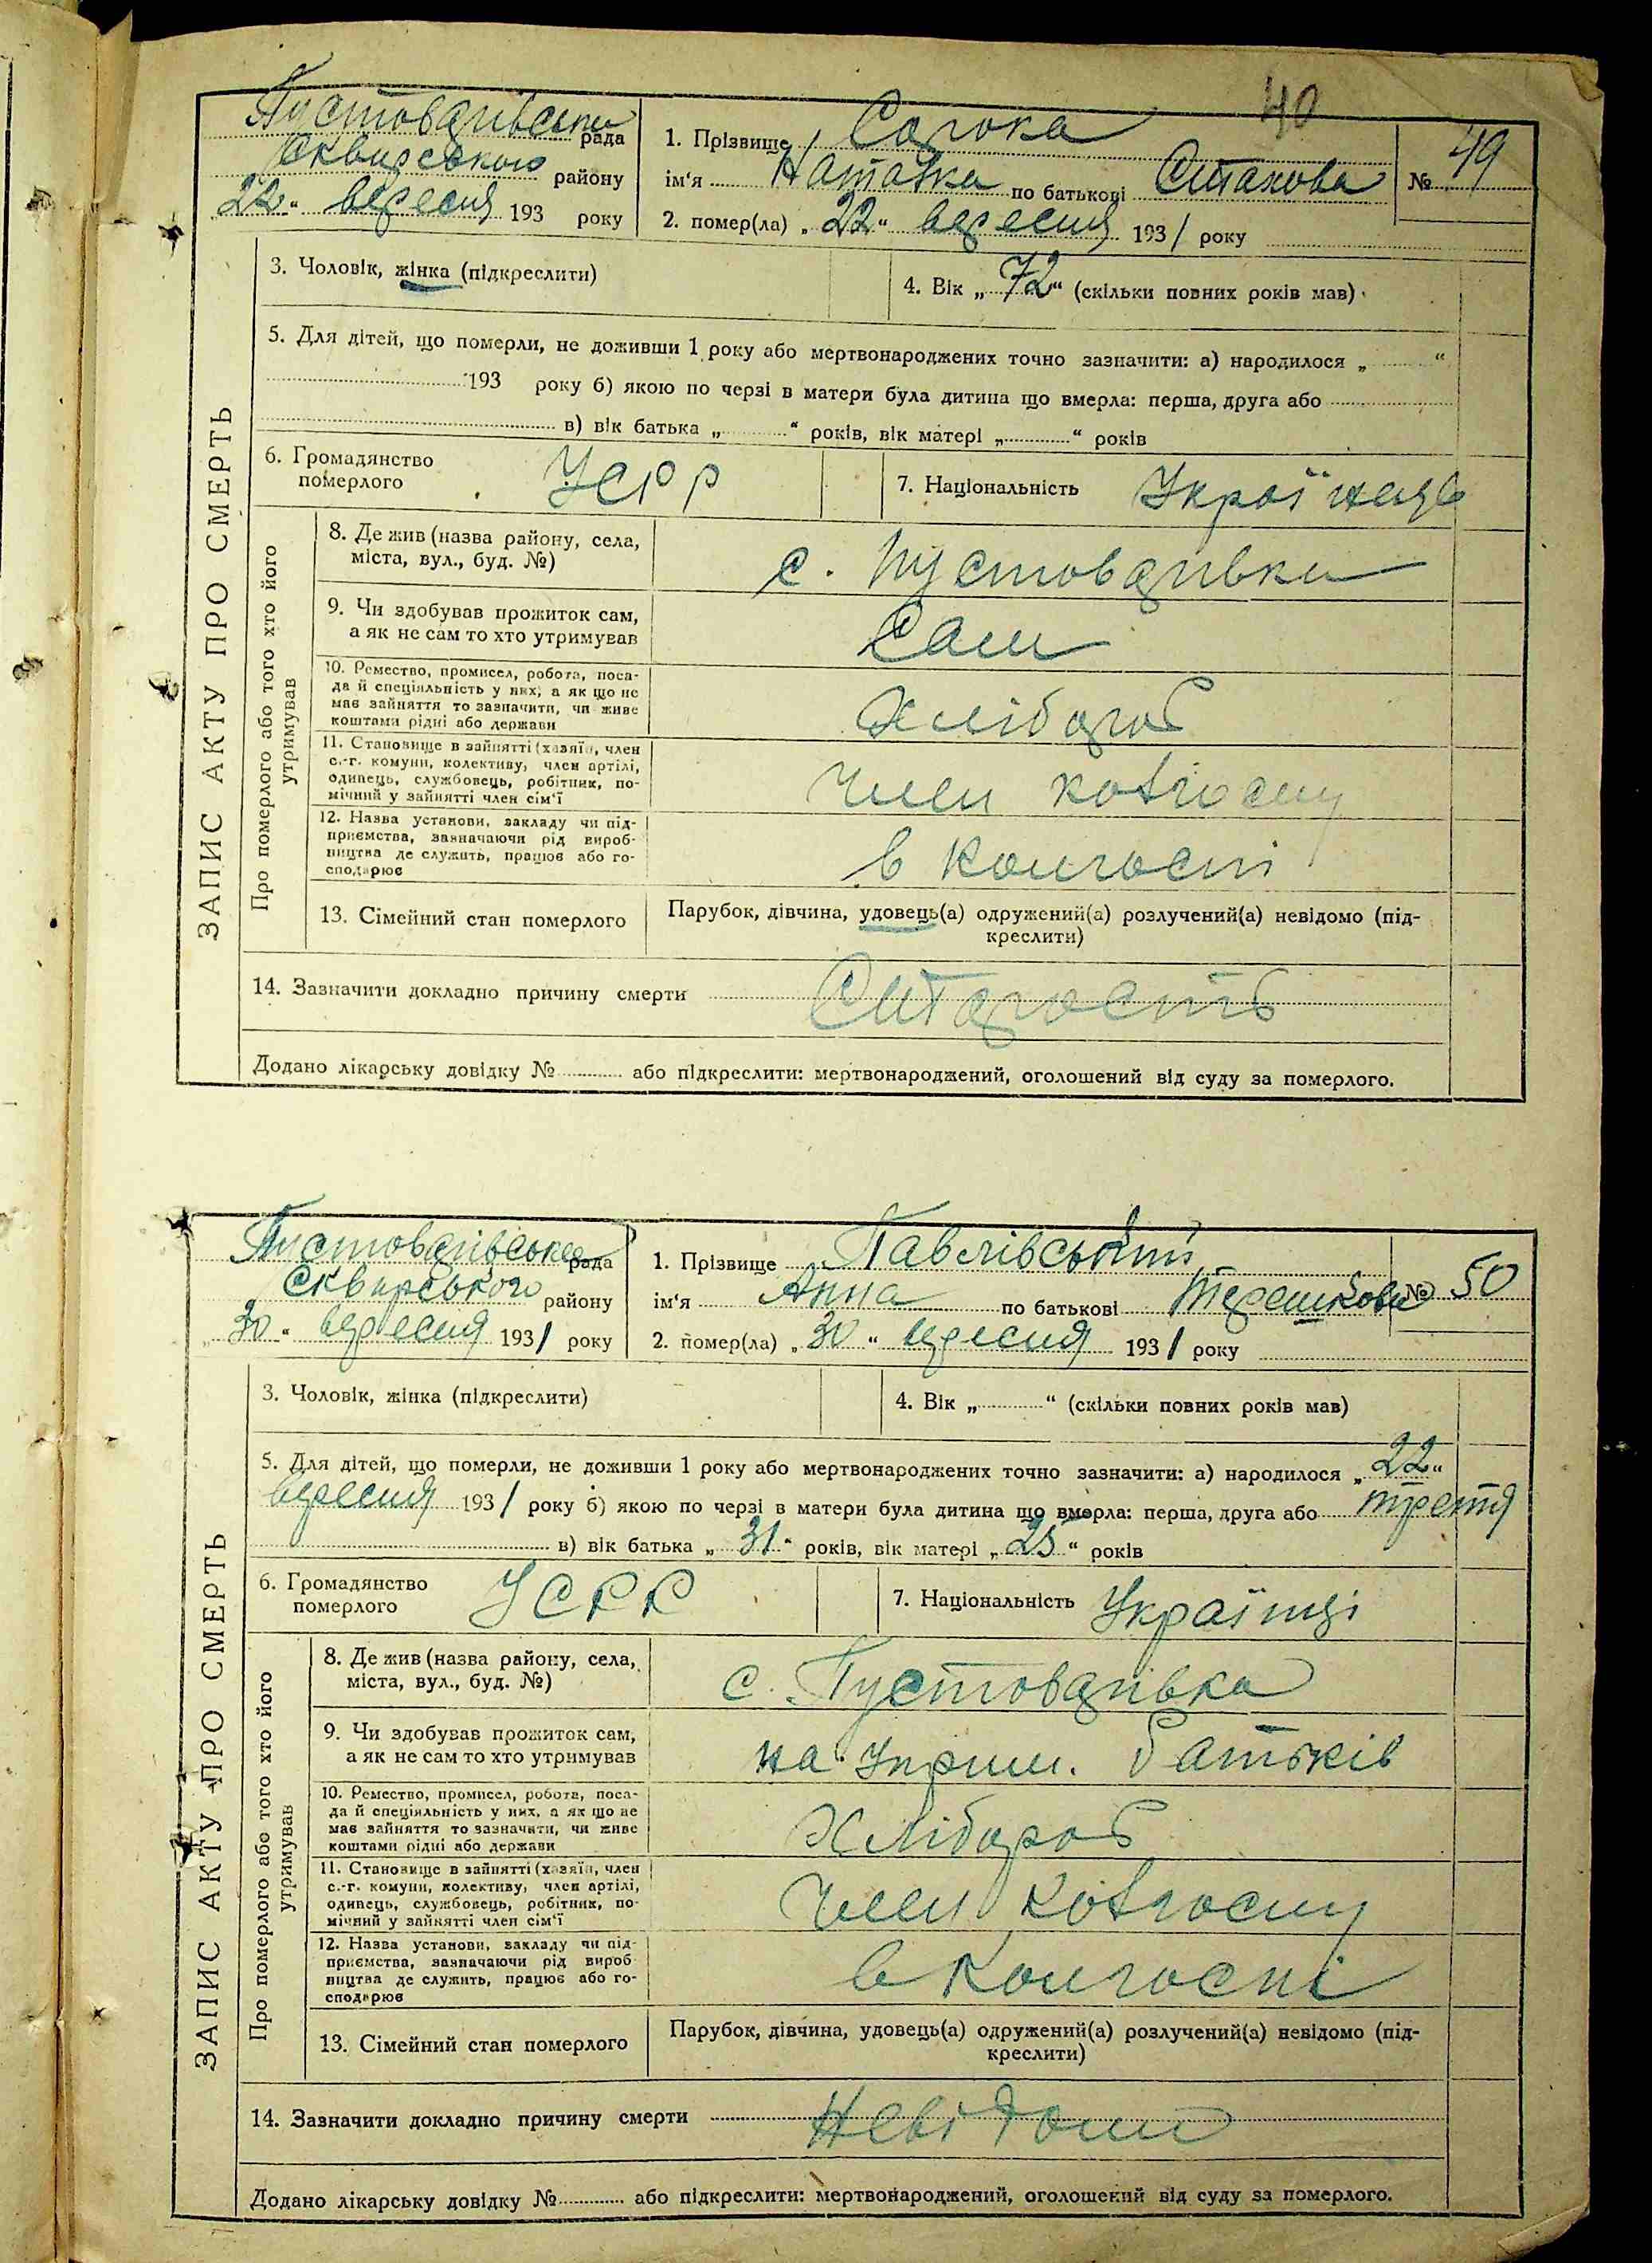 40
Пустоварівська рада
Сквирського району
22 " вересня 193 року
1. Прізвище Сорока
ім'я Наталка по батькові
2. помер(ла) „ 22 " вересня 1931 року
№ 49
ЗАПИС АКТУ ПРО СМЕРТЬ
3. Чоловік, жінка (підкреслити)
4. Вік „ 72 " (скільки повних років мав)
5. Для дітей, що померли, не доживши 1 року або мертвонароджених точно зазначити: а) народилося „ "
193 року б) якою по черзі в матери була дитина що вмерла: перша, друга або
в) вік батька „ " років, вік матері „ " років
6. Громадянство
померлого
УСРР
7. Національність
Про померлого або того хто його
утримував
8. Де жив (назва району, села,
міста, вул., буд. №)
с. Пустоварівка
9. Чи здобував прожиток сам,
а як не сам то хто утримував
Сам
10. Ремество, промисел, робота, поса-
да й спеціяльність у них, а як що не
має зайняття то зазначити, чи живе
коштами рідні або держави
Хлібороб
11. Становище в зайнятті (хазяїн, член
с.-г. комуни, колективу, член артілі,
одинець, службовець, робітник, по-
мічний у зайнятті член сім'ї
Член колгоспу
12. Назва установи, закладу чи під-
приємства, зазначаючи рід вироб-
ництва де служить, працює або го-
сподарює
в колгоспі
13. Сімейний стан померлого
Парубок, дівчина, удовець(а) одружений(а) розлучений(а) невідомо (під-
креслити)
14. Зазначити докладно причину смерти Старость
Додано лікарську довідку № або підкреслити: мертвонароджений, оголошений від суду за померлого.
Пустоварівська рада
Сквирського району
„ 30 " вересня 1931 року
1. Прізвище
ім'я Анна по батькові Терешкова
2. помер(ла) „ 30 " вересня 1931 року
№ 50
ЗАПИС АКТУ ПРО СМЕРТЬ
3. Чоловік, жінка (підкреслити)
4. Вік „ " (скільки повних років мав)
5. Для дітей, що померли, не доживши 1 року або мертвонароджених точно зазначити: а) народилося „ 22 "
вересня 1931 року б) якою по черзі в матери була дитина що вмерла: перша, друга або третя
в) вік батька „ 31 " років, вік матері „ 25 " років
6. Громадянство
померлого
УСРР
7. Національність
Про померлого або того хто його
утримував
8. Де жив (назва району, села,
міста, вул., буд. №)
с. Пустоварівка
9. Чи здобував прожиток сам,
а як не сам то хто утримував
на батьків
10. Ремество, промисел, робота, поса-
да й спеціяльність у них, а як що не
має зайняття то зазначити, чи живе
коштами рідні або держави
Хлібороб
11. Становище в зайнятті (хазяїн, член
с.-г. комуни, колективу, член артілі,
одинець, службовець, робітник, по-
мічний у зайнятті член сім'ї
Член колгоспу
12. Назва установи, закладу чи під-
приємства, зазначаючи рід вироб-
ництва де служить, працює або го-
сподарює
в колгоспі
13. Сімейний стан померлого
Парубок, дівчина, удовець(а) одружений(а) розлучений(а) невідомо (під-
креслити)
14. Зазначити докладно причину смерти
Додано лікарську довідку № або підкреслити: мертвонароджений, оголошений від суду за померлого.